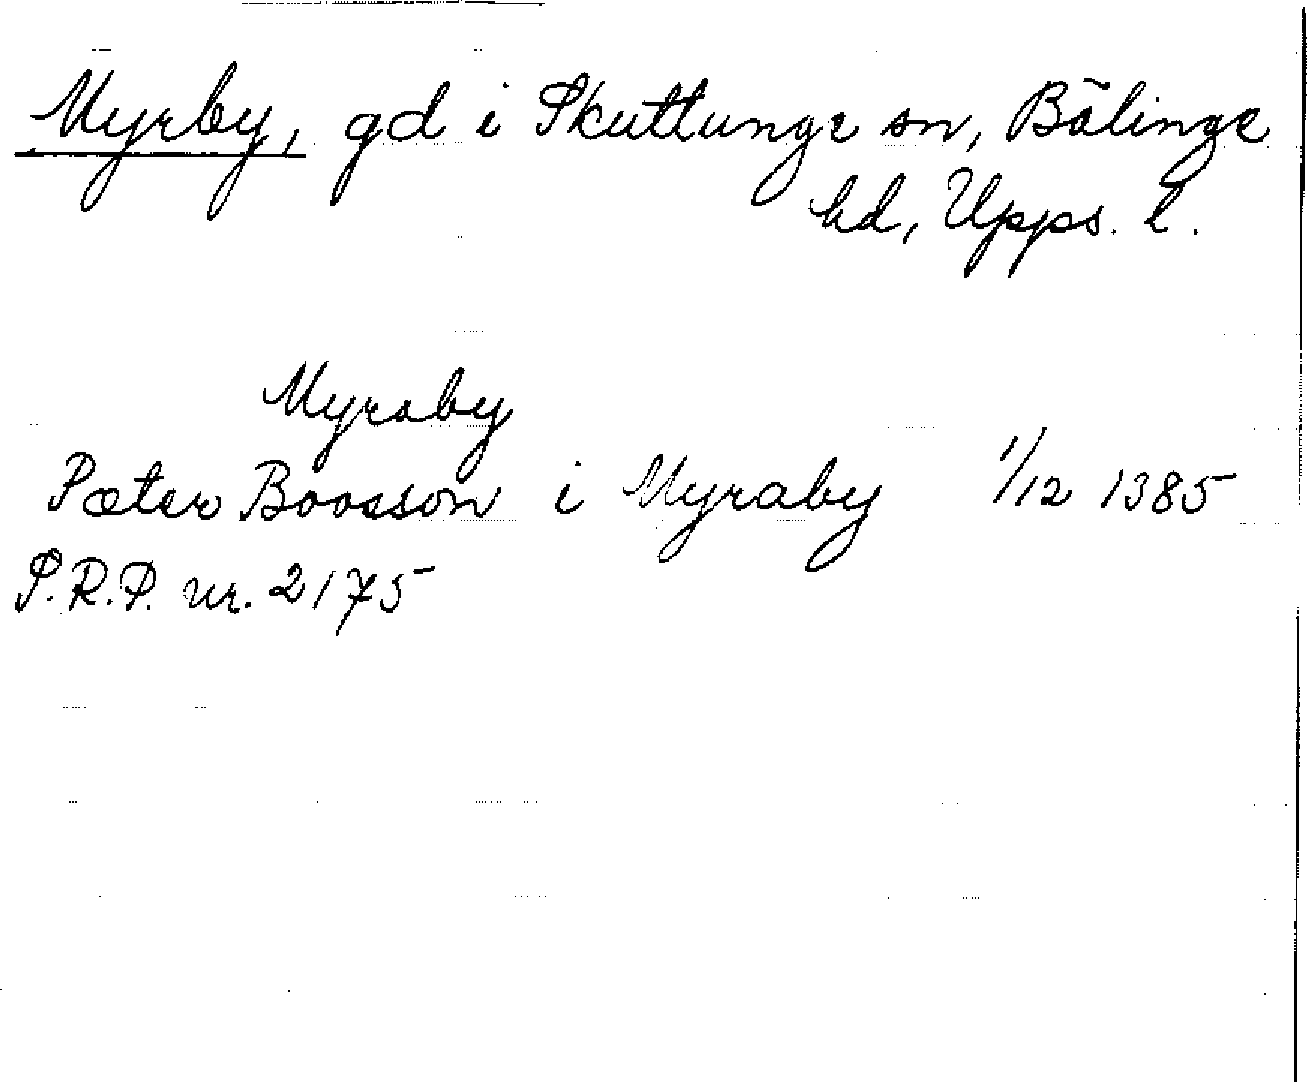 Myrby, gd i Skuttunge sn, Bälinge
hd, Upps. l.
Myraby
Pæter Boosson i Myraby 1/12 1385
S.R.P. nr. 2175